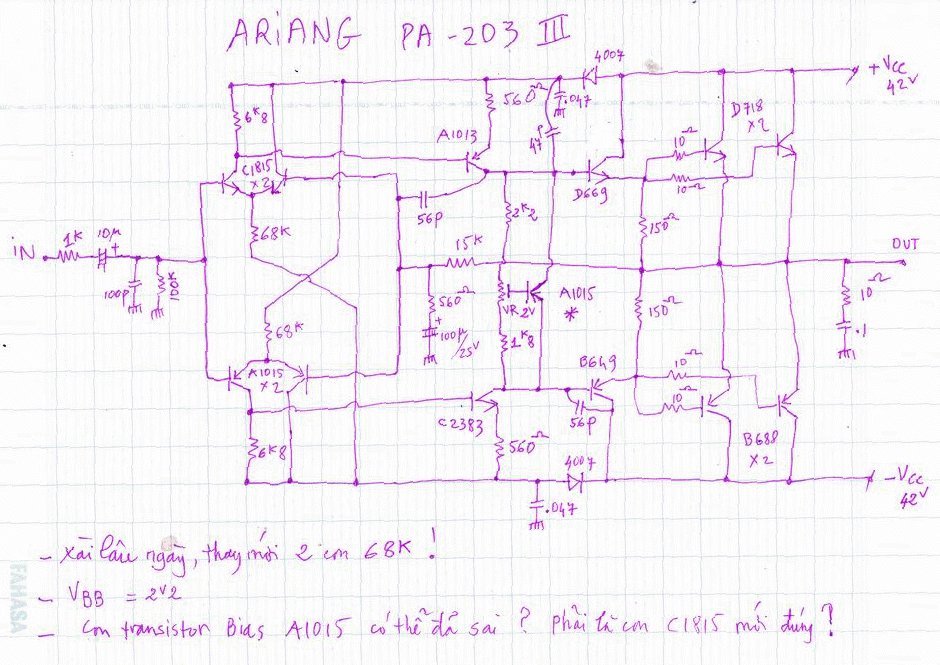 ARiANG PA-203 III
4007
+Vcc
42V
6K8
560Ω
.047
A1013
47P
D718
X2
10Ω
C1815
X2
D669
10Ω
56P
2K2
150Ω
68K
iN
1K
10µ
+
15K
OUT
100P
100K
560Ω
VR 2V
A1015
*
150Ω
10Ω
+
100µ
/25V
68K
1K8
.1
A1015
X2
B649
10Ω
10Ω
C2383
56P
6K8
560Ω
B688
X2
4007
-Vcc
42V
.047
- Xài lâu ngày, thay mới 2 con 68K !
- VBB = 2V2
- Con transistor Bias A1015 có thể đã sai ? phải là con C1815 mới đúng ?
FAHASA